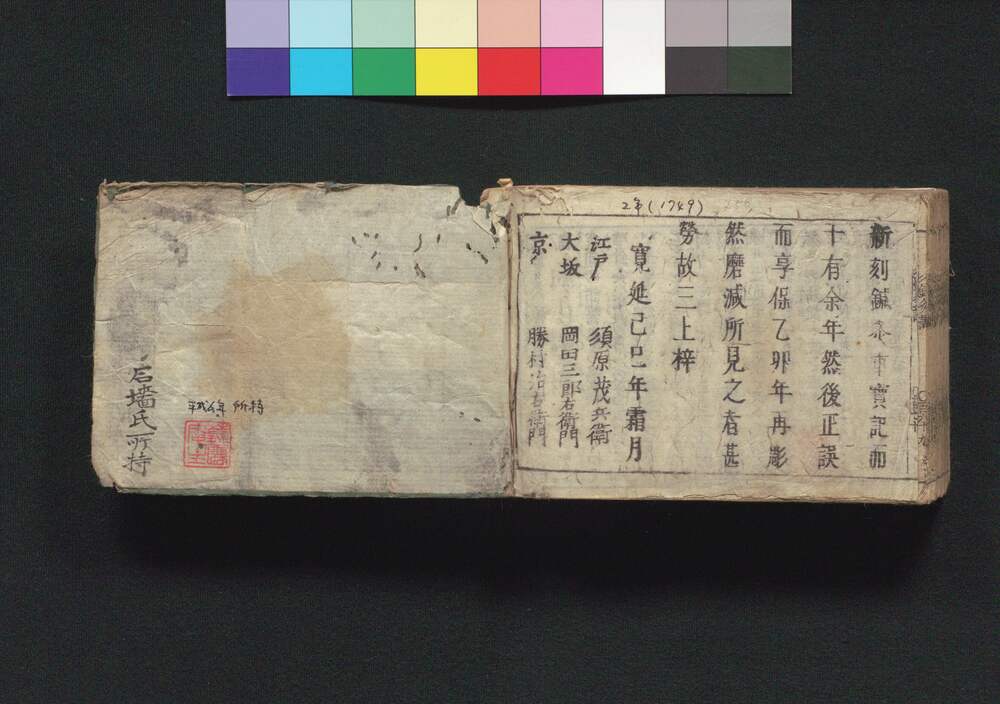 2年(1749)
新刻鍼灸重寳記而
十有余年然後正誤
而享保乙卯年再彫
然磨減所見之者甚
勞故三上梓
寛延己巳年霜月
江戸 須原茂兵衛
大坂 岡田三郎右衛門
京 勝村治右衛門
所持
墻氏所持